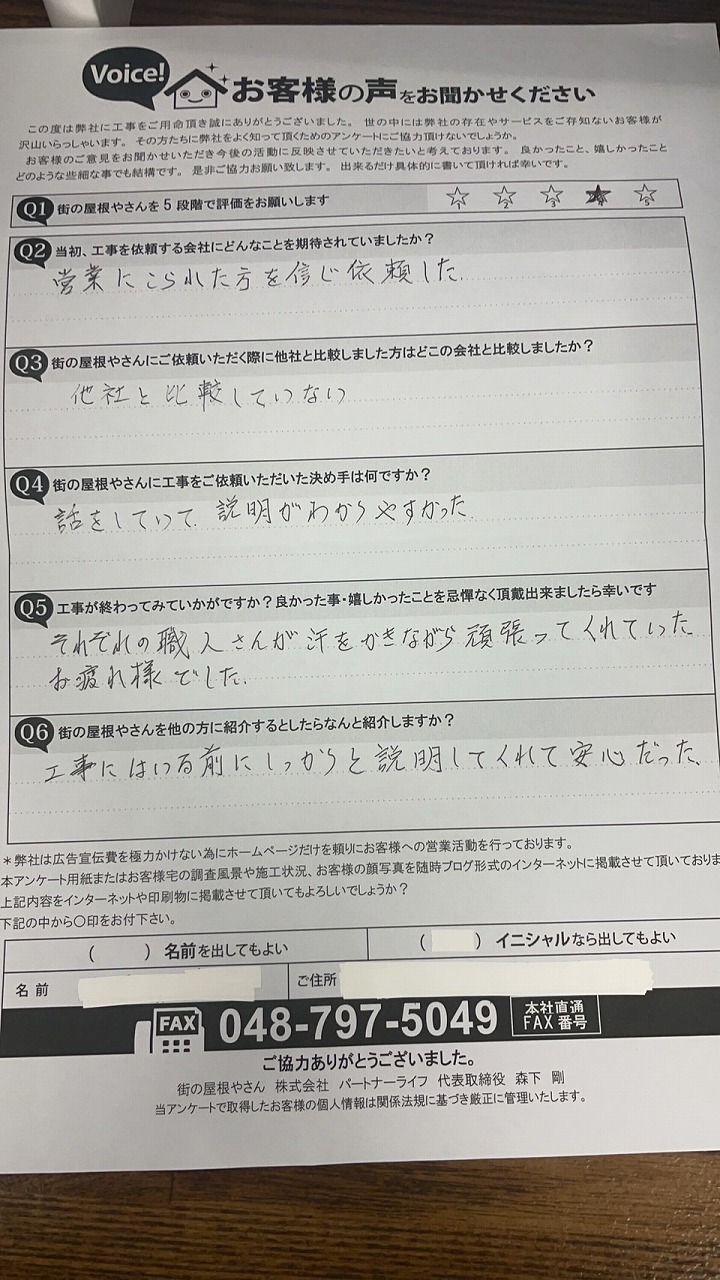 Voice!
お客様の声をお聞かせください
この度は弊社に工事をご用命頂き誠にありがとうございました。 世の中には弊社の存在やサービスをご存知ないお客様が
沢山いらっしゃいます。 その方たちに弊社をよく知って頂くためのアンケートにご協力頂けないでしょうか。
お客様のご意見をお聞かせいただき今後の活動に反映させていただきたいと考えております。 良かったこと、嬉しかったこと
どのような些細な事でも結構です。 是非ご協力お願い致します。 出来るだけ具体的に書いて頂ければ幸いです。
Q1 街の屋根やさんを5段階で評価をお願いします ☆1 ☆2 ☆3 ★4 ☆5
Q2 当初、工事を依頼する会社にどんなことを期待されていましたか？
営業にこられた方を信じ依頼した.
Q3 街の屋根やさんにご依頼いただく際に他社と比較しました方はどこの会社と比較しましたか？
他社と比較していない
Q4 街の屋根やさんに工事をご依頼いただいた決め手は何ですか？
話をしていて 説明がわかりやすかった
Q5 工事が終わってみていかがですか？良かった事・嬉しかったことを忌憚なく頂戴出来ましたら幸いです
それぞれの職人さんが汗をかきながら頑張ってくれていた
お疲れ様でした.
Q6 街の屋根やさんを他の方に紹介するとしたらなんと紹介しますか？
工事にはいる前にしっかりと説明してくれて安心だった、
＊弊社は広告宣伝費を極力かけない為にホームページだけを頼りにお客様への営業活動を行っております。
本アンケート用紙またはお客様宅の調査風景や施工状況、お客様の顔写真を随時ブログ形式のインターネットに掲載させて頂いておりま
上記内容をインターネットや印刷物に掲載させて頂いてもよろしいでしょうか？
下記の中から〇印をお付下さい。
（　　）名前を出してもよい （　　）イニシャルなら出してもよい
名前 ご住所
FAX 048-797-5049 本社直通
FAX番号
ご協力ありがとうございました。
街の屋根やさん 株式会社 パートナーライフ 代表取締役 森下 剛
当アンケートで取得したお客様の個人情報は関係法規に基づき厳正に管理いたします。